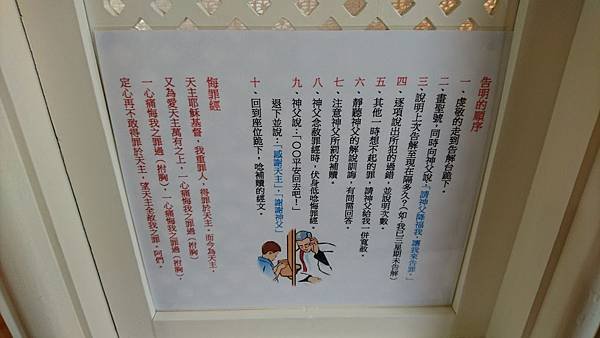 告明的順序
一、虔敬的走到告解台跪下。
二、畫聖號，同時向神父說「請神父降福我，讓我來告罪。」
三、說明上次告解至現在隔多久？（如：我已三星期未告解）
四、逐項說出所犯的過錯，並說明次數。
五、其他一時想不起的罪，請神父給我一併寬赦。
六、靜聽神父的解說訓誨，有問需回答。
七、注意神父所罰的補贖。
八、神父念赦罪經時，伏身低唸悔罪經。
九、神父說：「〇〇平安回去吧！」
退下並說：「感謝天主」、「謝謝神父」
十、回到座位跪下，唸補贖的經文。
悔罪經
天主耶穌基督，我重罪人，得罪於天主，而今為天主，
又為愛天主萬有之上，一心痛悔我之罪過（拊胸）
一心痛悔我之罪過（拊胸），一心痛悔我之罪過（拊胸），
定心再不敢得罪於天主，望天主全赦我之罪。阿們。